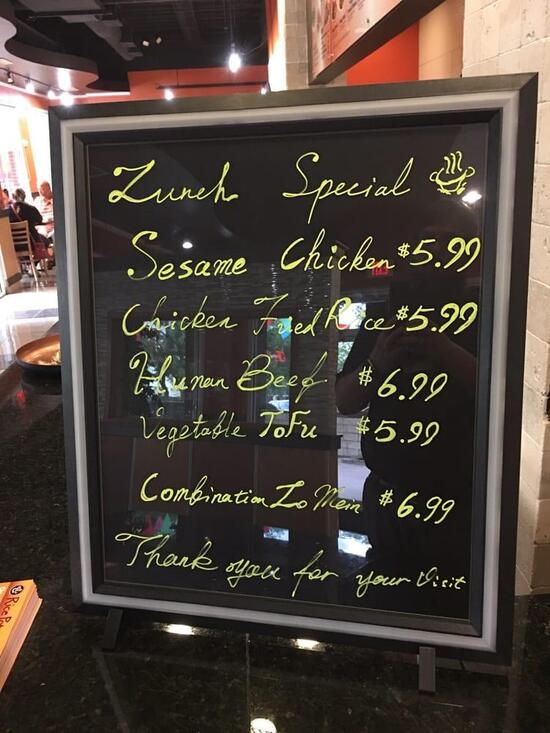 Lunch Special
Sesame Chicken $5.99
Chicken Fried Rice $5.99
Hunan Beef $6.99
Vegetable ToFu $5.99
Combination Lo Mein $6.99
Thank you for your Visit